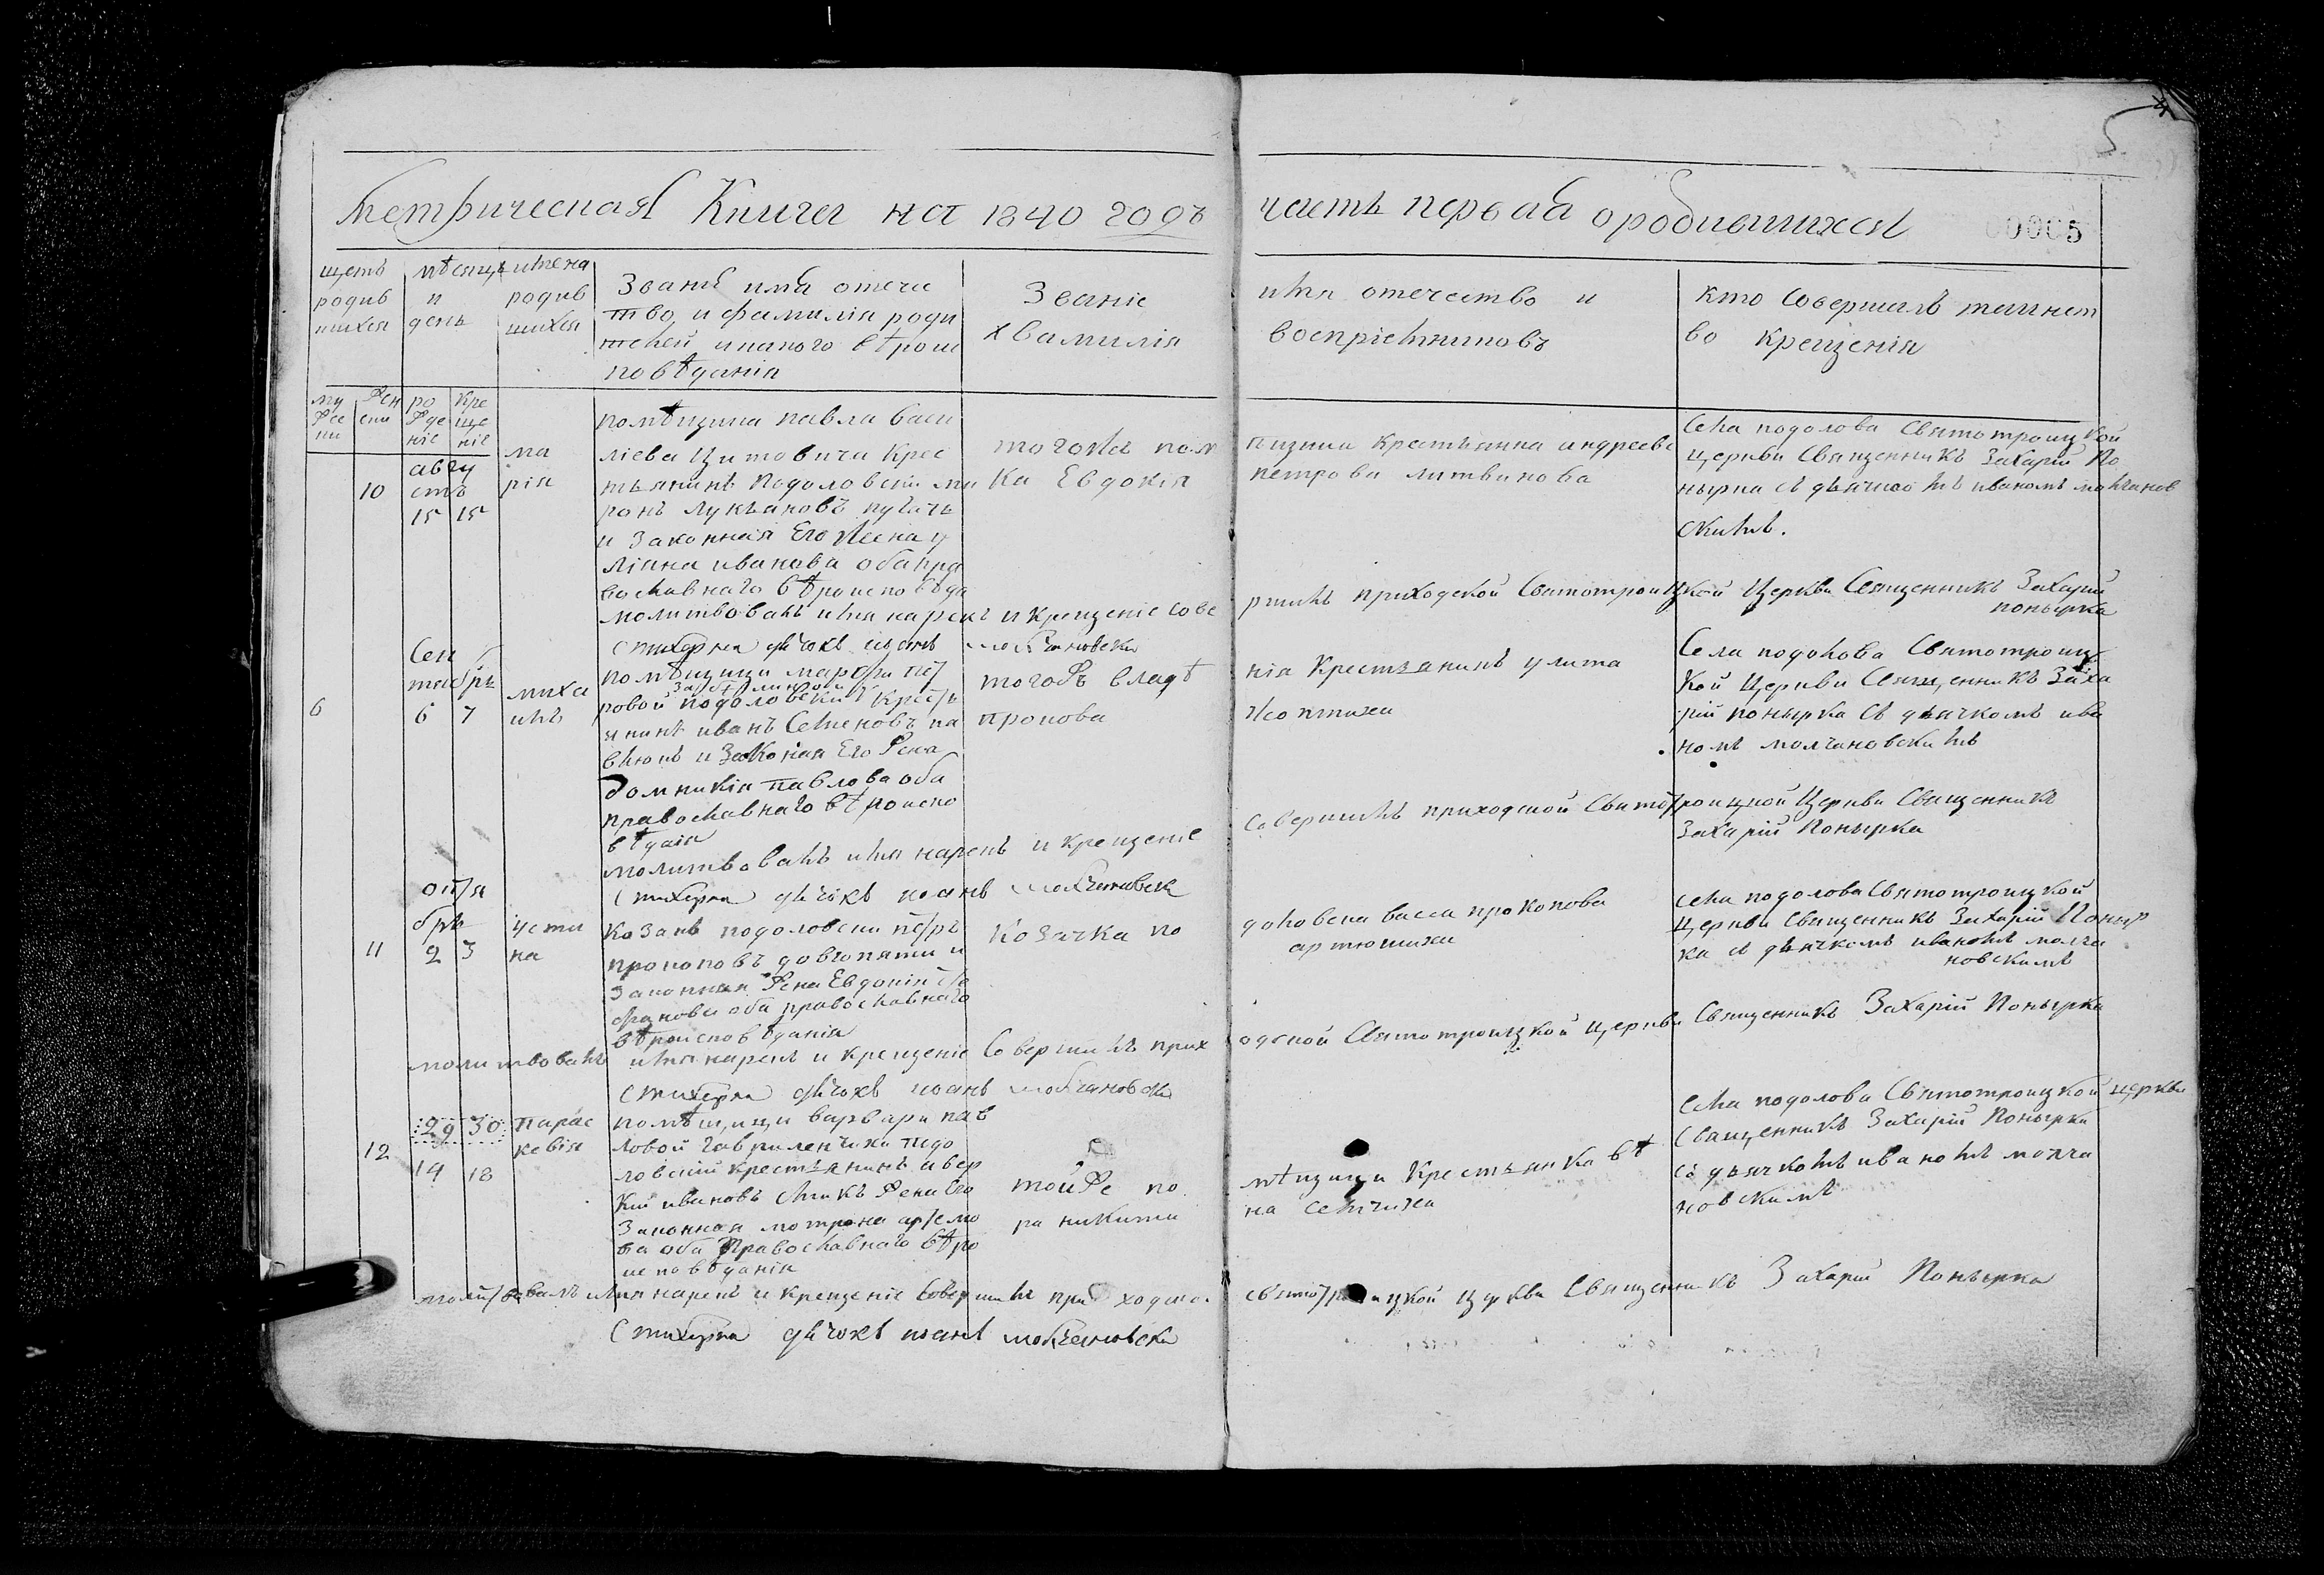 5
Метрическая Книга на 1840 годъ часть первая о родившихся
00005
щетъ родив шихся
мѣсяцъ и день
имена родив шихся
Званіе имя отече
тво и фамилія роди
телей и какого вѣроис
повѣданія
Званіе
хвамилія
имя отечество и
воспріемниковъ
кто Совершалъ таинст
во крещенія
му
же
ски
жен
ски
ро
жде
ніе
Кре
ще
ніе
10
авгу
стъ
15 15
ма
рія
помѣщика павла васи
ліева Цитовича Крес
тьянинъ Подоловски ми
ронъ Лукьяновъ пугачъ
и Законная Его жена у
ліяна иванова оба пра
вославнаго вѣроисповѣда
тогожъ пом
ка Евдокія
петрова литвинова
Села подолова Святотроицкой
Церкви Священникъ Захарій По
нырка съ дьячкомъ иваномъ молчанов
скимъ.
молитвовалъ имя нарекъ и Крещеніе сове
ршилъ приходской Святотроицкой Церкви Священникъ Захарій
понырка
Стихарны дячокъ іоанъ молчановски
6
Сен
тябрь
6 7
миха
илъ
помѣщици марфи пет
ровой подоловский Крестья
нинъ иванъ Семеновъ па
влюкъ и Законая Его жена
домникія павлова оба
православнаго вѣроиспо
вѣдаія
тогожъ владѣ
нія Крестьянинъ улита
прокова
Села подолова Святотроиц
кой Церкви Священникъ Заха
рій понырка съ дьячкомъ ива
номъ молчановскимъ
молитвовалъ имя нарекъ и крещеніе
совершилъ приходской Святотроицкой Церкви Священникъ
Захарій Понырка
Стихарны дячокъ іоанъ молчановски
11
октя
брь
2 3
усти
на
Козакъ подоловски петръ
прокоповъ довгопяти и
Законная жена Евдокія сте
фанова оба православнаго
вѣроисповѣданія
Козачка по
доловска васса прокопова
артюшиха
Села подолова Святотроицкой
Церкви Священникъ Захарій Поныр
ка съ дьячкомъ иваномъ молча
новскимъ
молитвовалъ имя нарекъ и крещеніе Совершилъ прих
одской Святотроицкой Церкви Священникъ Захарій Понырка
Стихарны дячокъ іоанъ молчановски
12
29 30
14 18
парас
кевія
помѣщици варвари пав
ловой гавриленчики подо
ловский крестьянинъ авер
кій ивановъ жена Его
Законная мотрона артемо
ва оба Православнаго вѣро
исповѣданія
тойже по
мѣщици Крестьянка вѣ
ра никити
на
Села подолова Святотроицкой церкви
Священникъ Захарій Понырка
съ дьячкомъ иваномъ молча
новскимъ
молитвовалъ имя нарекъ и крещеніе Совершилъ приходской
святотроицкой Церкви Священникъ Захарій Понырка
Стихарны дячокъ іоанъ молчановски